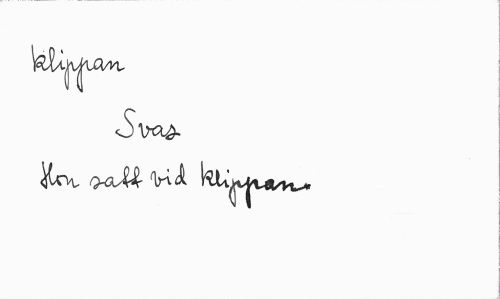 klippan
Svas
Hon satt vid klippan.